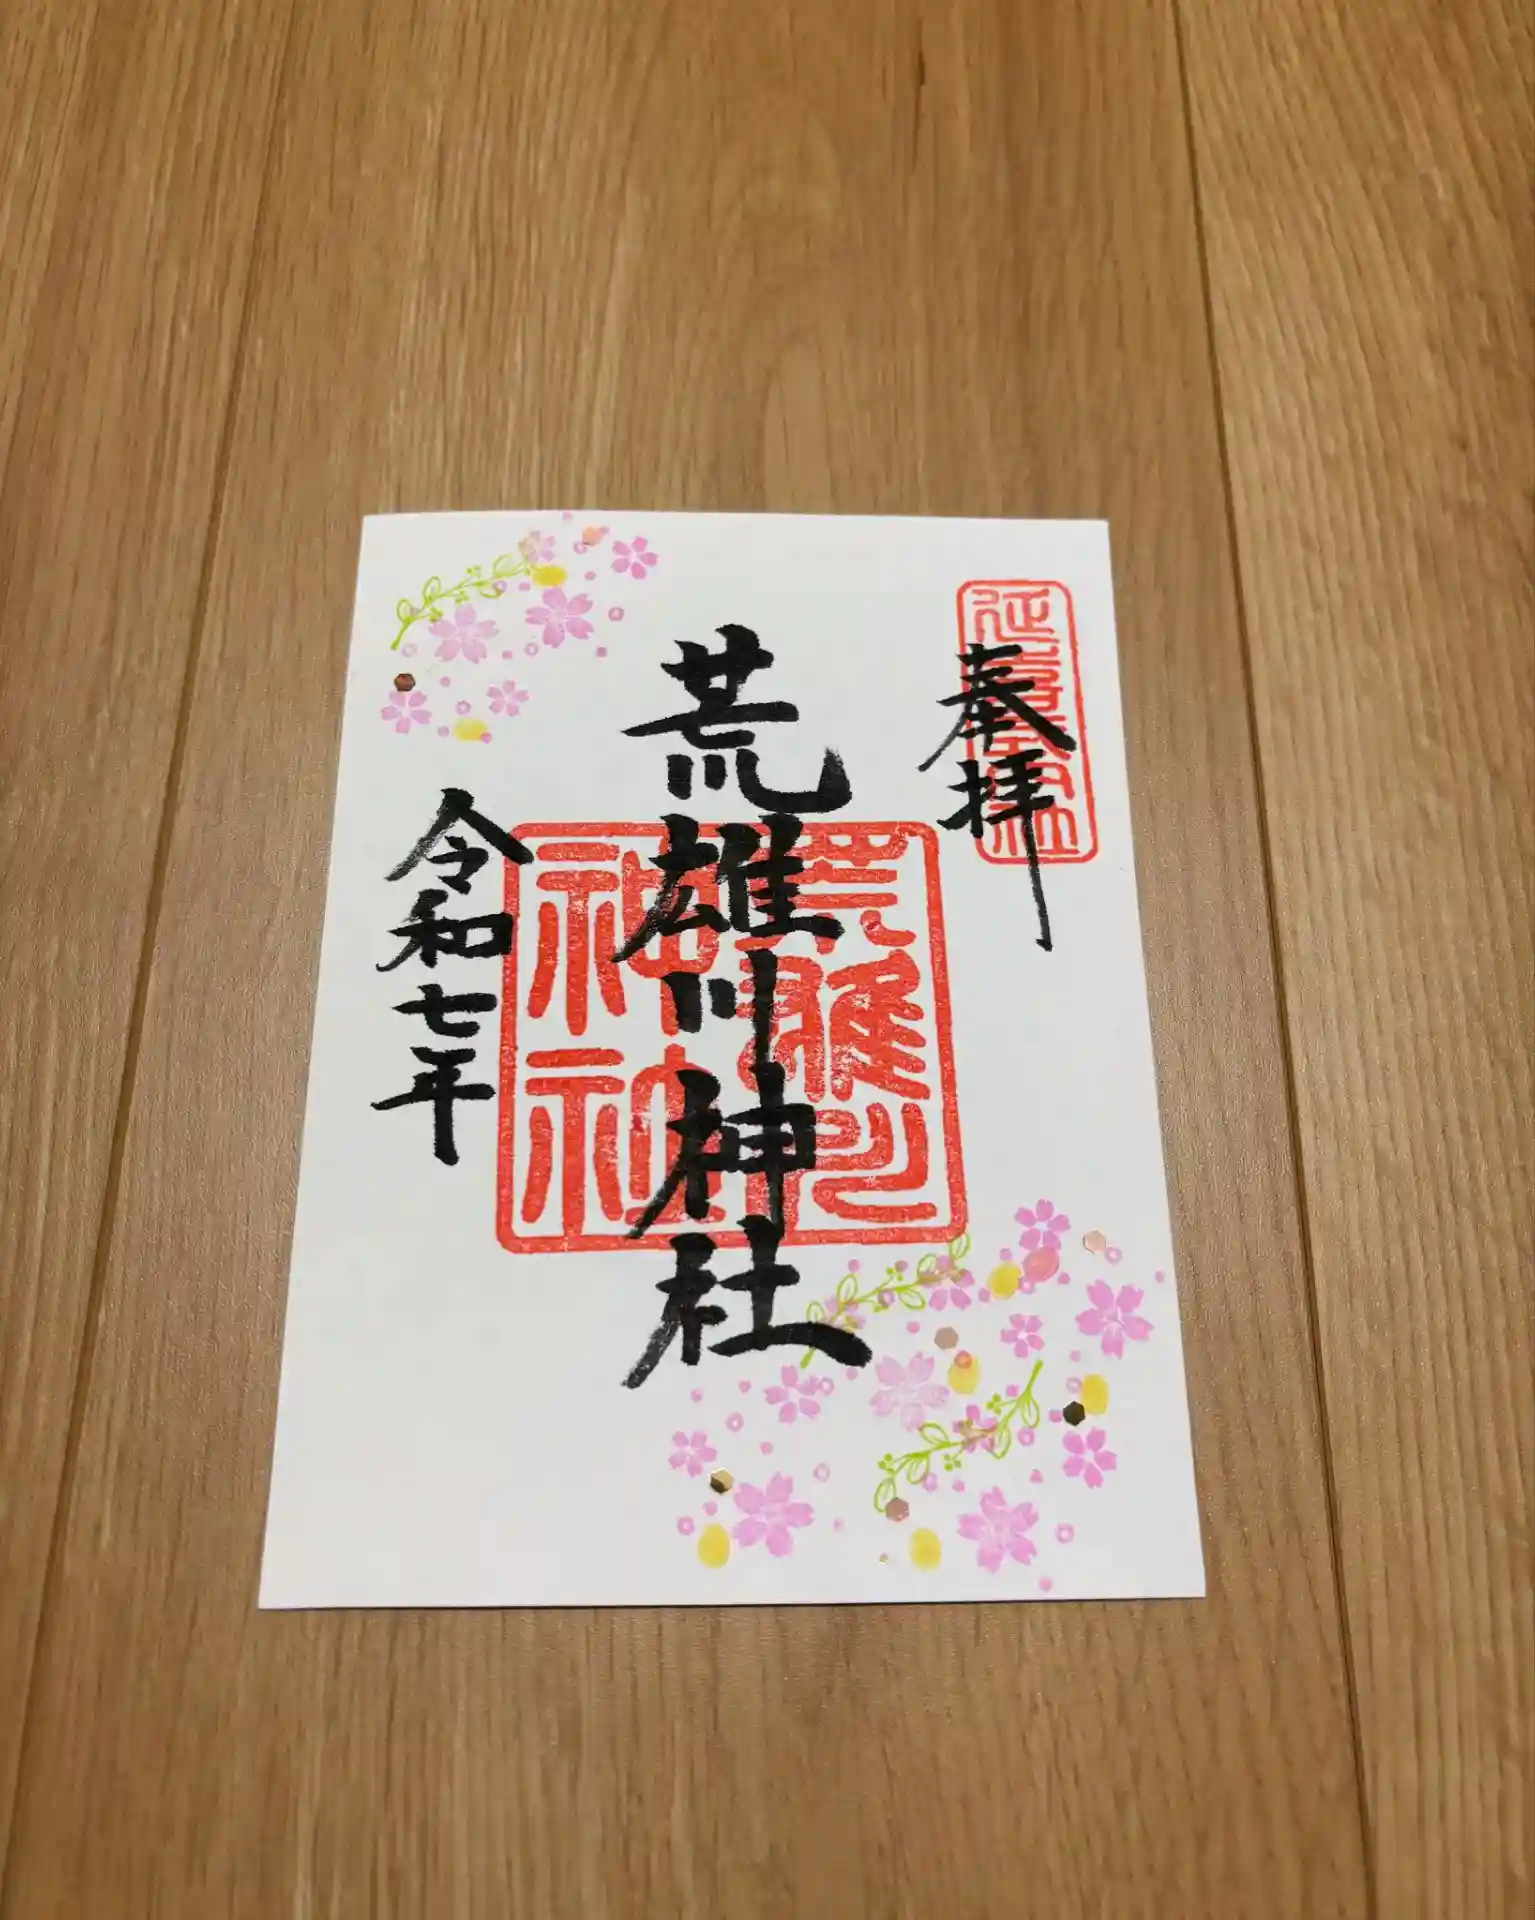 延喜式内社
奉拝
荒雄川神社
荒雄川
神社
令和七年